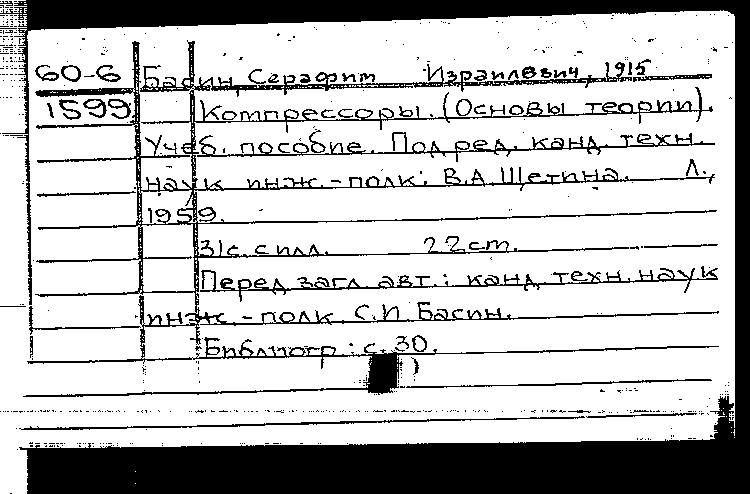 60-6 Басин, Серафим Израилевич, 1915
1599 Компрессоры. (Основы теории).
Учеб. пособие. Под ред. канд. техн.
наук инж.-полк. В.А. Щетина. Л.,
1959.
31с. с илл. 22см.
Перед загл. авт.: канд. техн. наук
инж.-полк. С.И. Басин.
Библиогр.: с. 30.
)